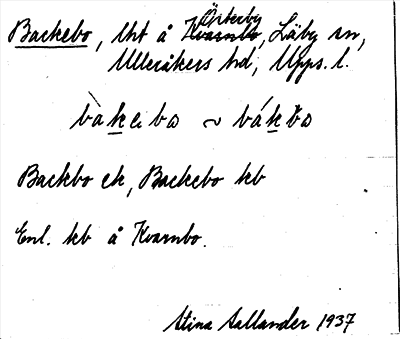 Backebo, lht å Kvarnbo, Läby sn,
Österby
Ulleråkers hd, Upps. l.
bàkebo ~ bákbo
Backbo ek, Backebo kb
Enl. kb å Kvarnbo.
Stina Sallander 1937